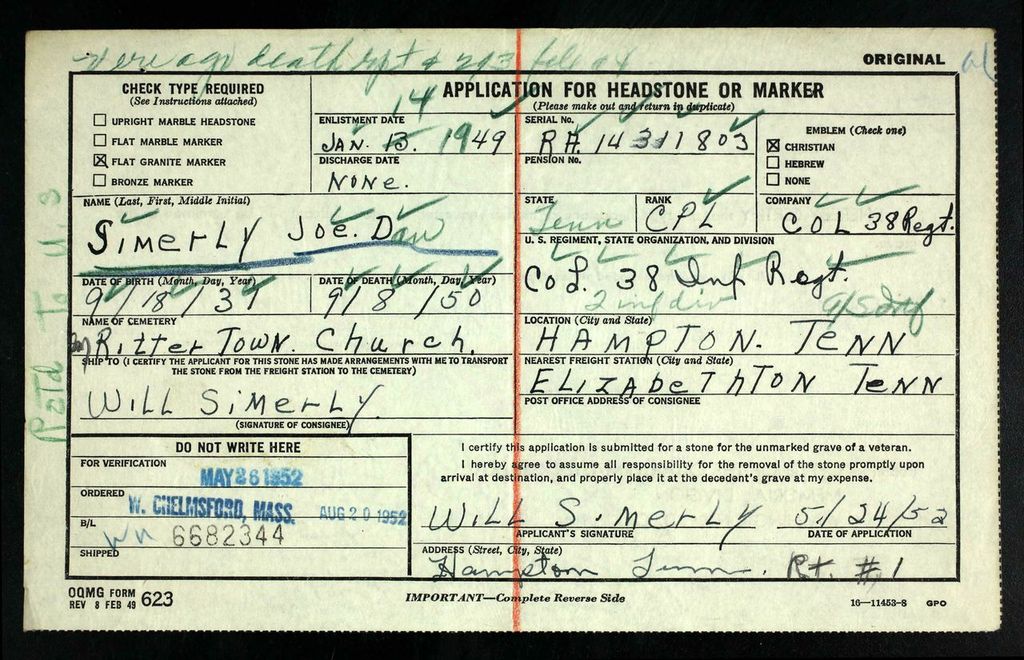 death rpt & 293 file
ORIGINAL
CHECK TYPE REQUIRED
(See Instructions attached)
☐ UPRIGHT MARBLE HEADSTONE
☐ FLAT MARBLE MARKER
☒ FLAT GRANITE MARKER
☐ BRONZE MARKER
APPLICATION FOR HEADSTONE OR MARKER
(Please make out and return in duplicate)
ENLISTMENT DATE
14
JAN. 13. 1949
DISCHARGE DATE
NONE.
SERIAL No.
RA. 14 311 803
PENSION No.
EMBLEM (Check one)
☒ CHRISTIAN
☐ HEBREW
☐ NONE
NAME (Last, First, Middle Initial)
SIMERLY JOE. Dan
STATE
Tenn
RANK
CPL
COMPANY
CO L 38 Regt.
U. S. REGIMENT, STATE ORGANIZATION, AND DIVISION
CO L. 38 Inf Regt.
2 inf div
DATE OF BIRTH (Month, Day, Year)
9/18/31
DATE OF DEATH (Month, Day, Year)
9/8/50
NAME OF CEMETERY
Ritter Town. Church.
LOCATION (City and State)
HAMPTON. TENN
SHIP TO (I CERTIFY THE APPLICANT FOR THIS STONE HAS MADE ARRANGEMENTS WITH ME TO TRANSPORT
THE STONE FROM THE FREIGHT STATION TO THE CEMETERY)
NEAREST FREIGHT STATION (City and State)
ELIZAbeThTON TeNN
WILL SIMERLY.
(SIGNATURE OF CONSIGNEE)
POST OFFICE ADDRESS OF CONSIGNEE
DO NOT WRITE HERE
FOR VERIFICATION
MAY 28 1952
ORDERED
W. CHELMSFORD, MASS. AUG 20 1952
B/L
6682344
SHIPPED
I certify this application is submitted for a stone for the unmarked grave of a veteran.
I hereby agree to assume all responsibility for the removal of the stone promptly upon
arrival at destination, and properly place it at the decedent's grave at my expense.
WILL SIMERLY 5/24/52
APPLICANT'S SIGNATURE DATE OF APPLICATION
ADDRESS (Street, City, State)
Hampton Tenn. Rt. #1
OQMG FORM
REV 8 FEB 49 623
IMPORTANT—Complete Reverse Side
16—11453-8 GPO
Retd To U S